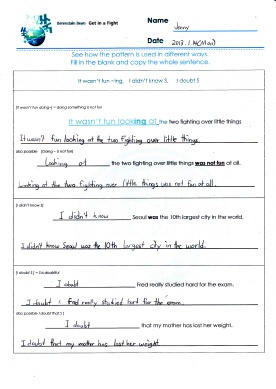 Get in a Fight
Name Jenny
Date 2013. 1. 14(Mon)
See how the pattern is used in different ways.
Fill in the blank and copy the whole sentence.
It wasn't fun ~ing, I didn't know S, I doubt S
[It wasn't fun doing~] = doing something is not fun
It wasn't fun looking at the two fighting over little things
It wasn't fun looking at the two fighting over little things.
also possible [Doing ~ is not fun]
Looking at the two fighting over little things was not fun at all.
Looking at the two fighting over little things was not fun at all.
[I didn't know S]
I didn't know Seoul was the 10th largest city in the world.
I didn't know Seoul was the 10th largest city in the world.
[I doubt S] = I'm doubtful
I doubt Fred really studied hard for the exam.
I doubt Fred really studied hard for the exam.
also possible I doubt that S
I doubt that my mother has lost her weight.
I doubt that my mother has lost her weight.